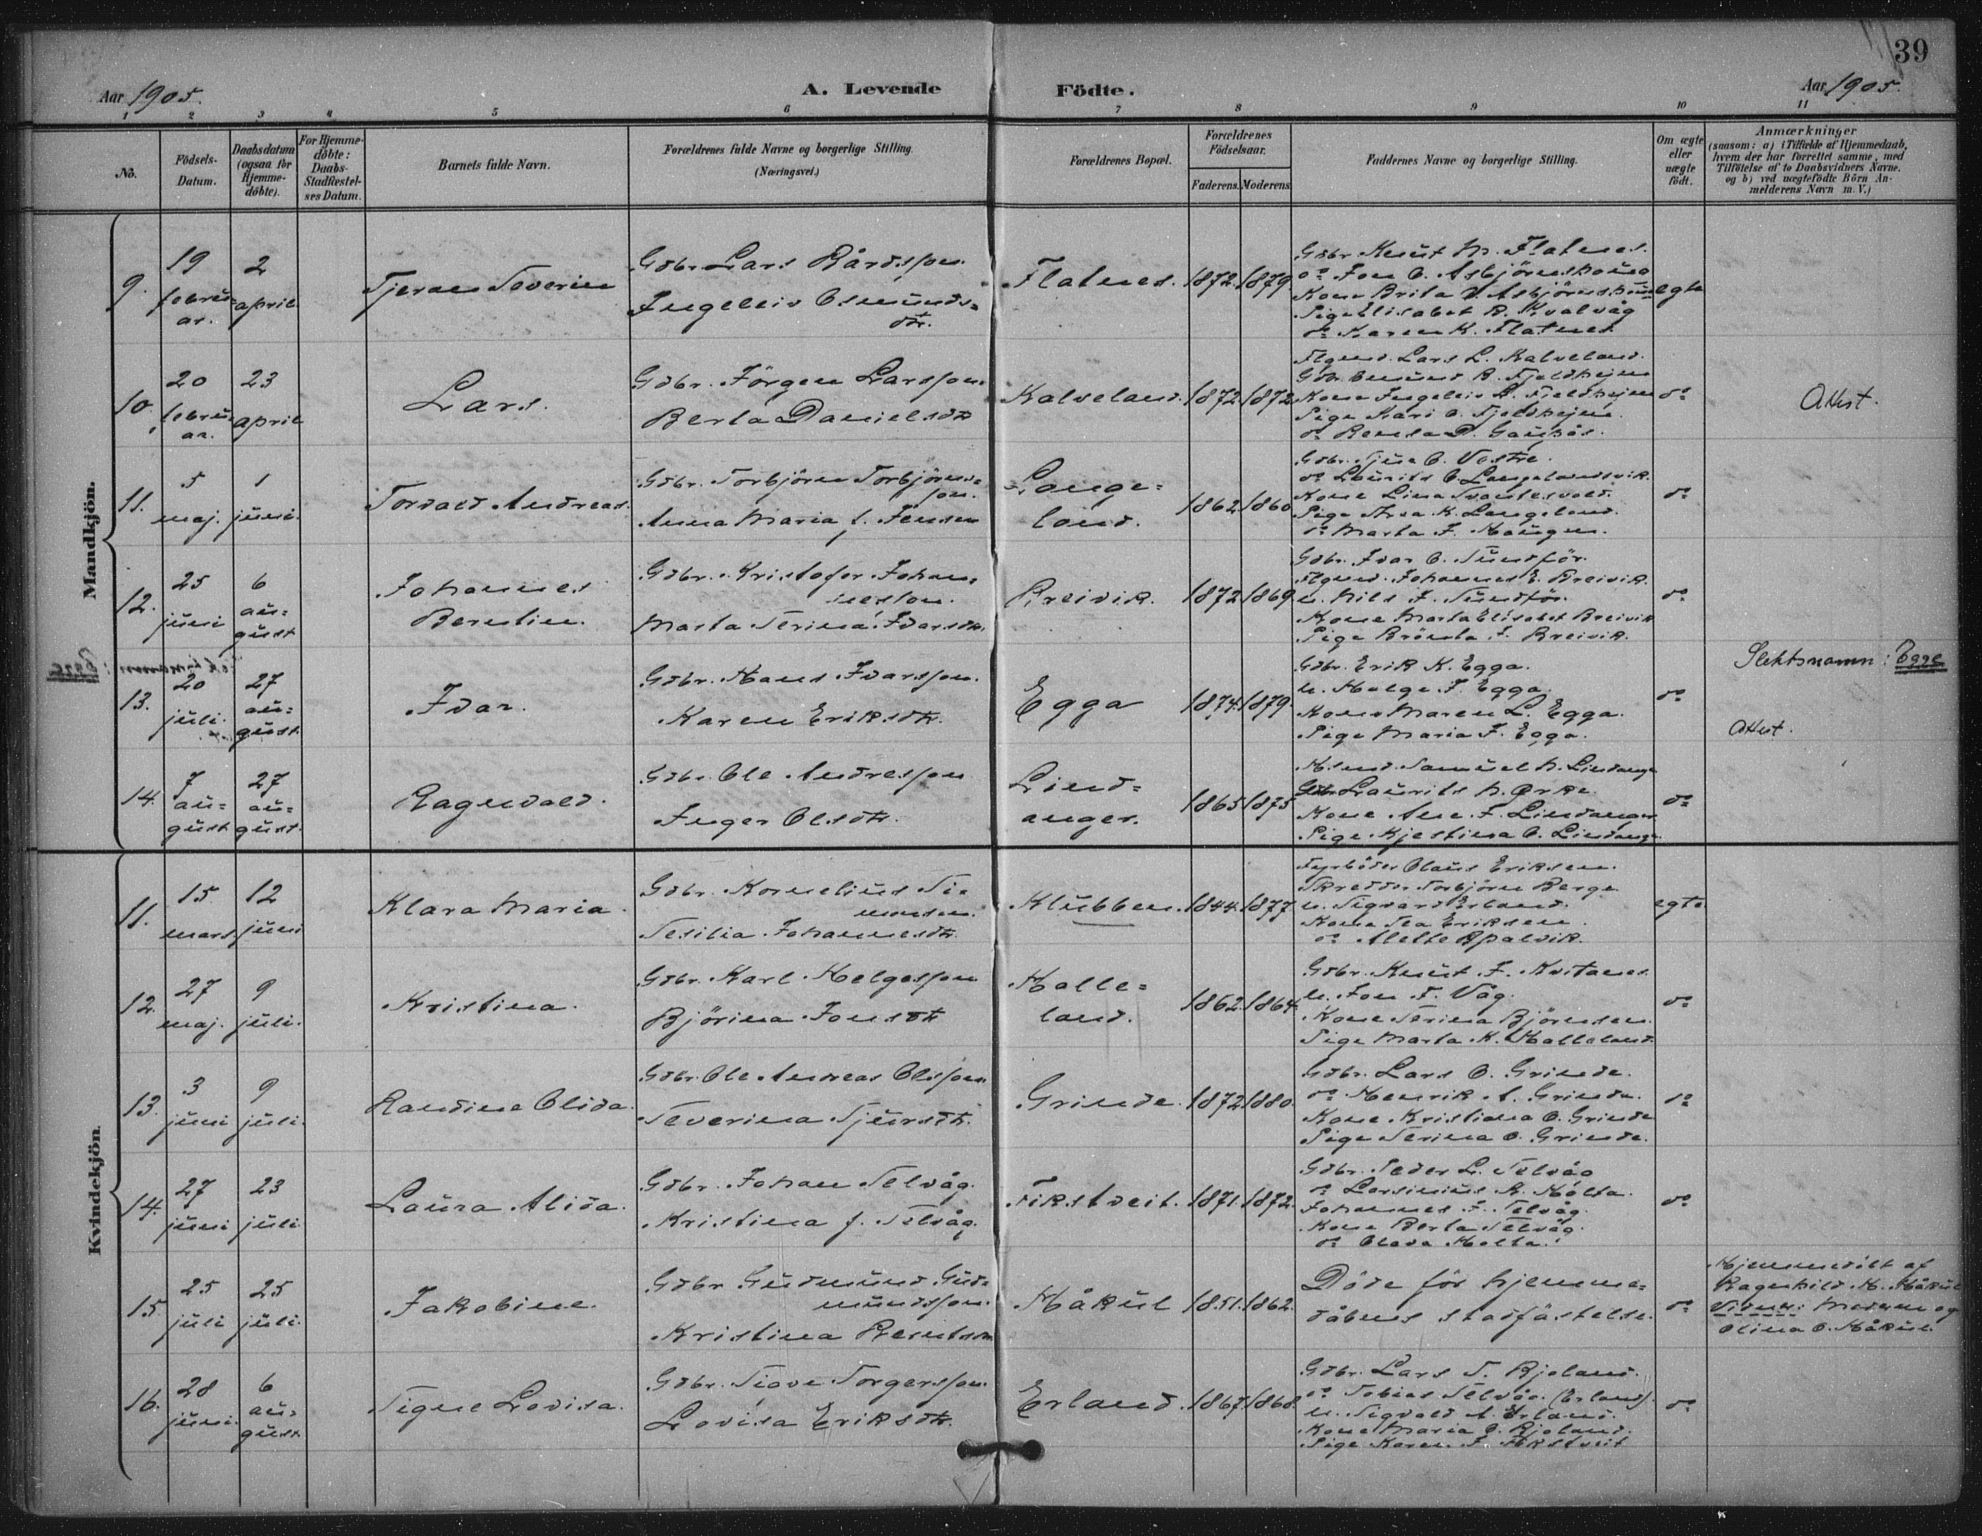 39
Aar 1905.
A. Levende Födte.
Aar 1905.
1 2 3 4 5 6 7 8 9 10 11
No.
Födsels-Datum.
Daabsdatum (ogsaa for Hjemme-döbte).
For Hjemme-döbte: Daabs-Stadfæstel-ses Datum.
Barnets fulde Navn.
Forældrenes fulde Navne og borgerlige Stilling. (Næringsvei.)
Forældrenes Bopæl.
Forældrenes Födselsaar.
Faderens. Moderens.
Faddernes Navne og borgerlige Stilling.
Om ægte eller uægte födt.
Anmærkninger
(saasom: a) i Tilfælde af Hjemmedaab,
hvem der har forrettet samme, med
Tilföielse af to Daabsvidners Navne.
og b) ved uægtefödte Börn An-
melderens Navn m. V.)
Mandkjön.
9. 19 februar. 2 april Tjeran Severin
Gdbr. Lars Bårdsson.
Ingeleiv Osmunds=
dtr.
Flatnes. 1872. 1879.
Gdbr. Knut M. Flatnes.
do Jon O. Asbjörnshaug
Kone Brita Asbjörnshaug
Pige Elisabet R. Kvalvåg
do Karen K. Flatnes
egte
10. 20 februar. 23 april Lars.
Gdbr. Jörgen Larsson.
Berta Danielsdtr
Kalveland. 1872 1872
Ugmd. Lars L. Kalveland.
Gdbr. Omund R. Fjeldhejm
Kone Ingeleiv R. Fjeldhejm
Pige Kari O. Fjeldhejm.
do Rensa D. Gausås.
do
Attest.
11. 5 maj. 1 juni. Torvald Andreas.
Gdbr. Torbjörn Torbjörns=
son.
Anna Maria f. Jensen
Lange=
land.
1862 1860
Gdbr. O. Vestre.
do Laurits O. Langelandsvik.
Kone Lina Svantesvold.
Pige K. Langeland.
do Marta J. Haugen.
do
12. 25 juni 6 august Johannes
Berntin.
Gdbr. Kristofer Johan=
nesson.
Marta Serina Ivarsdtr.
Breivik. 1872 1869.
Gdbr. Ivar O. Sundför.
Ugmd. Johannes E. Breivik.
u. Nils J. Sundför.
Kone Marta Elisabet Breivik
Pige Brönla J. Breivik.
do
13. 20 juli. 27 august. Ivar.
Gdbr. Hans Ivarsson.
Karen Eriksdtr.
Egga 1874. 1879.
Gdbr. Erik K. Egga.
u. Helge J. Egga.
Kone Maren L. Egga.
Pige Maria J. Egga.
do
Slektsnamn: Egge
Attest.
14. 7 august 27 august. Ragnvald.
Gdbr. Ole Andresson
Inger Olsdtr.
Lind=
anger.
1865 1875
Samuel N. Lindanger
Gdbr Laurits N. Ørke.
Kone Ane J. Lindanger
Pige Kjestina O. Lindanger.
do
Kvindekjön.
11. 15. mars 12 juni Klara Maria.
Gdbr. Kornelius Si=
monsen.
Sesilia Johannesdtr.
Klubben. 1844. 1877.
Fyrböder Olaus Eriksen.
Skredder Torbjörn Berge
u. Sigvard Erland.
Kone Sea Eriksen.
do Alette Spalvik.
egte.
12. 27 maj. 9 juli. Kristina.
Gdbr. Karl Helgesson
Björina Jonsdtr
Halle=
land.
1862. 1864.
Gdbr. Knut J. Kvitanes
u. Jon T. Våg.
Kone Serina Björnsen.
Pige Marta K. Halleland.
do
13. 3 juni 9 juli. Randine Olida.
Gdbr. Ole Andreas Olsson
Severina Sjursdtr.
Grinde. 1872 1880.
Gdbr. Lars O. Grinde.
do Henrik A. Grinde.
Kone Kristiana O. Grinde
Pige Serina O. Grinde.
do
14. 27 juni 23 juli Laura Alida.
Gdbr. Johan Selvåg.
Kristina f. Selvåg.
Fikstveit. 1871. 1872.
Gdbr. Peder L. Selvåg
do Larsinius R. Holta.
Johannes J. Selvåg.
Kone Berta Selvåg.
do Olava Holta.
do
15. 25 juli 25 juli. Jakobine.
Gdbr Gudmund Gud=
mundsson.
Kristina Berntsdtr
Håkul 1851. 1862.
Döde för hjemme=
dåbens stadfästelse.
do
Hjemmedöbt af
Ragnhild H. Håkul
Vidner: Moderen og
Olina O. Håkul.
16. 28 juni. 6 august. Signe Lovisa.
Gdbr. Tiove Torgersson.
Lovisa Eriksdtr.
Erland. 1867 1868.
Gdbr. Lars T. Bjoland.
do Tobias Selvåg. (Erland).
u. Sigvald A. Erland.
Kone Maria O. Bjoland.
Pige Karen J. Fikstveit
do